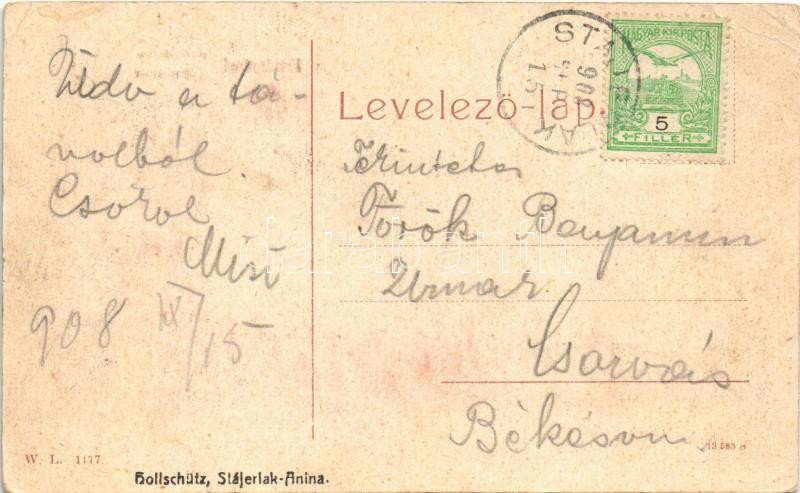 Üdv a tá-
volból.
Csókol
Misi
908 IX/15
Levelező-lap.
STAJERLAK
908
15
MAGYAR KIR. POSTA
5
FILLÉR
Tekintetes
Török Benjamin
Urnak
Csorvás
Békésvm.
darabanth
W. L. 1177
13583 B
Hollschütz, Stájerlak-Anina.